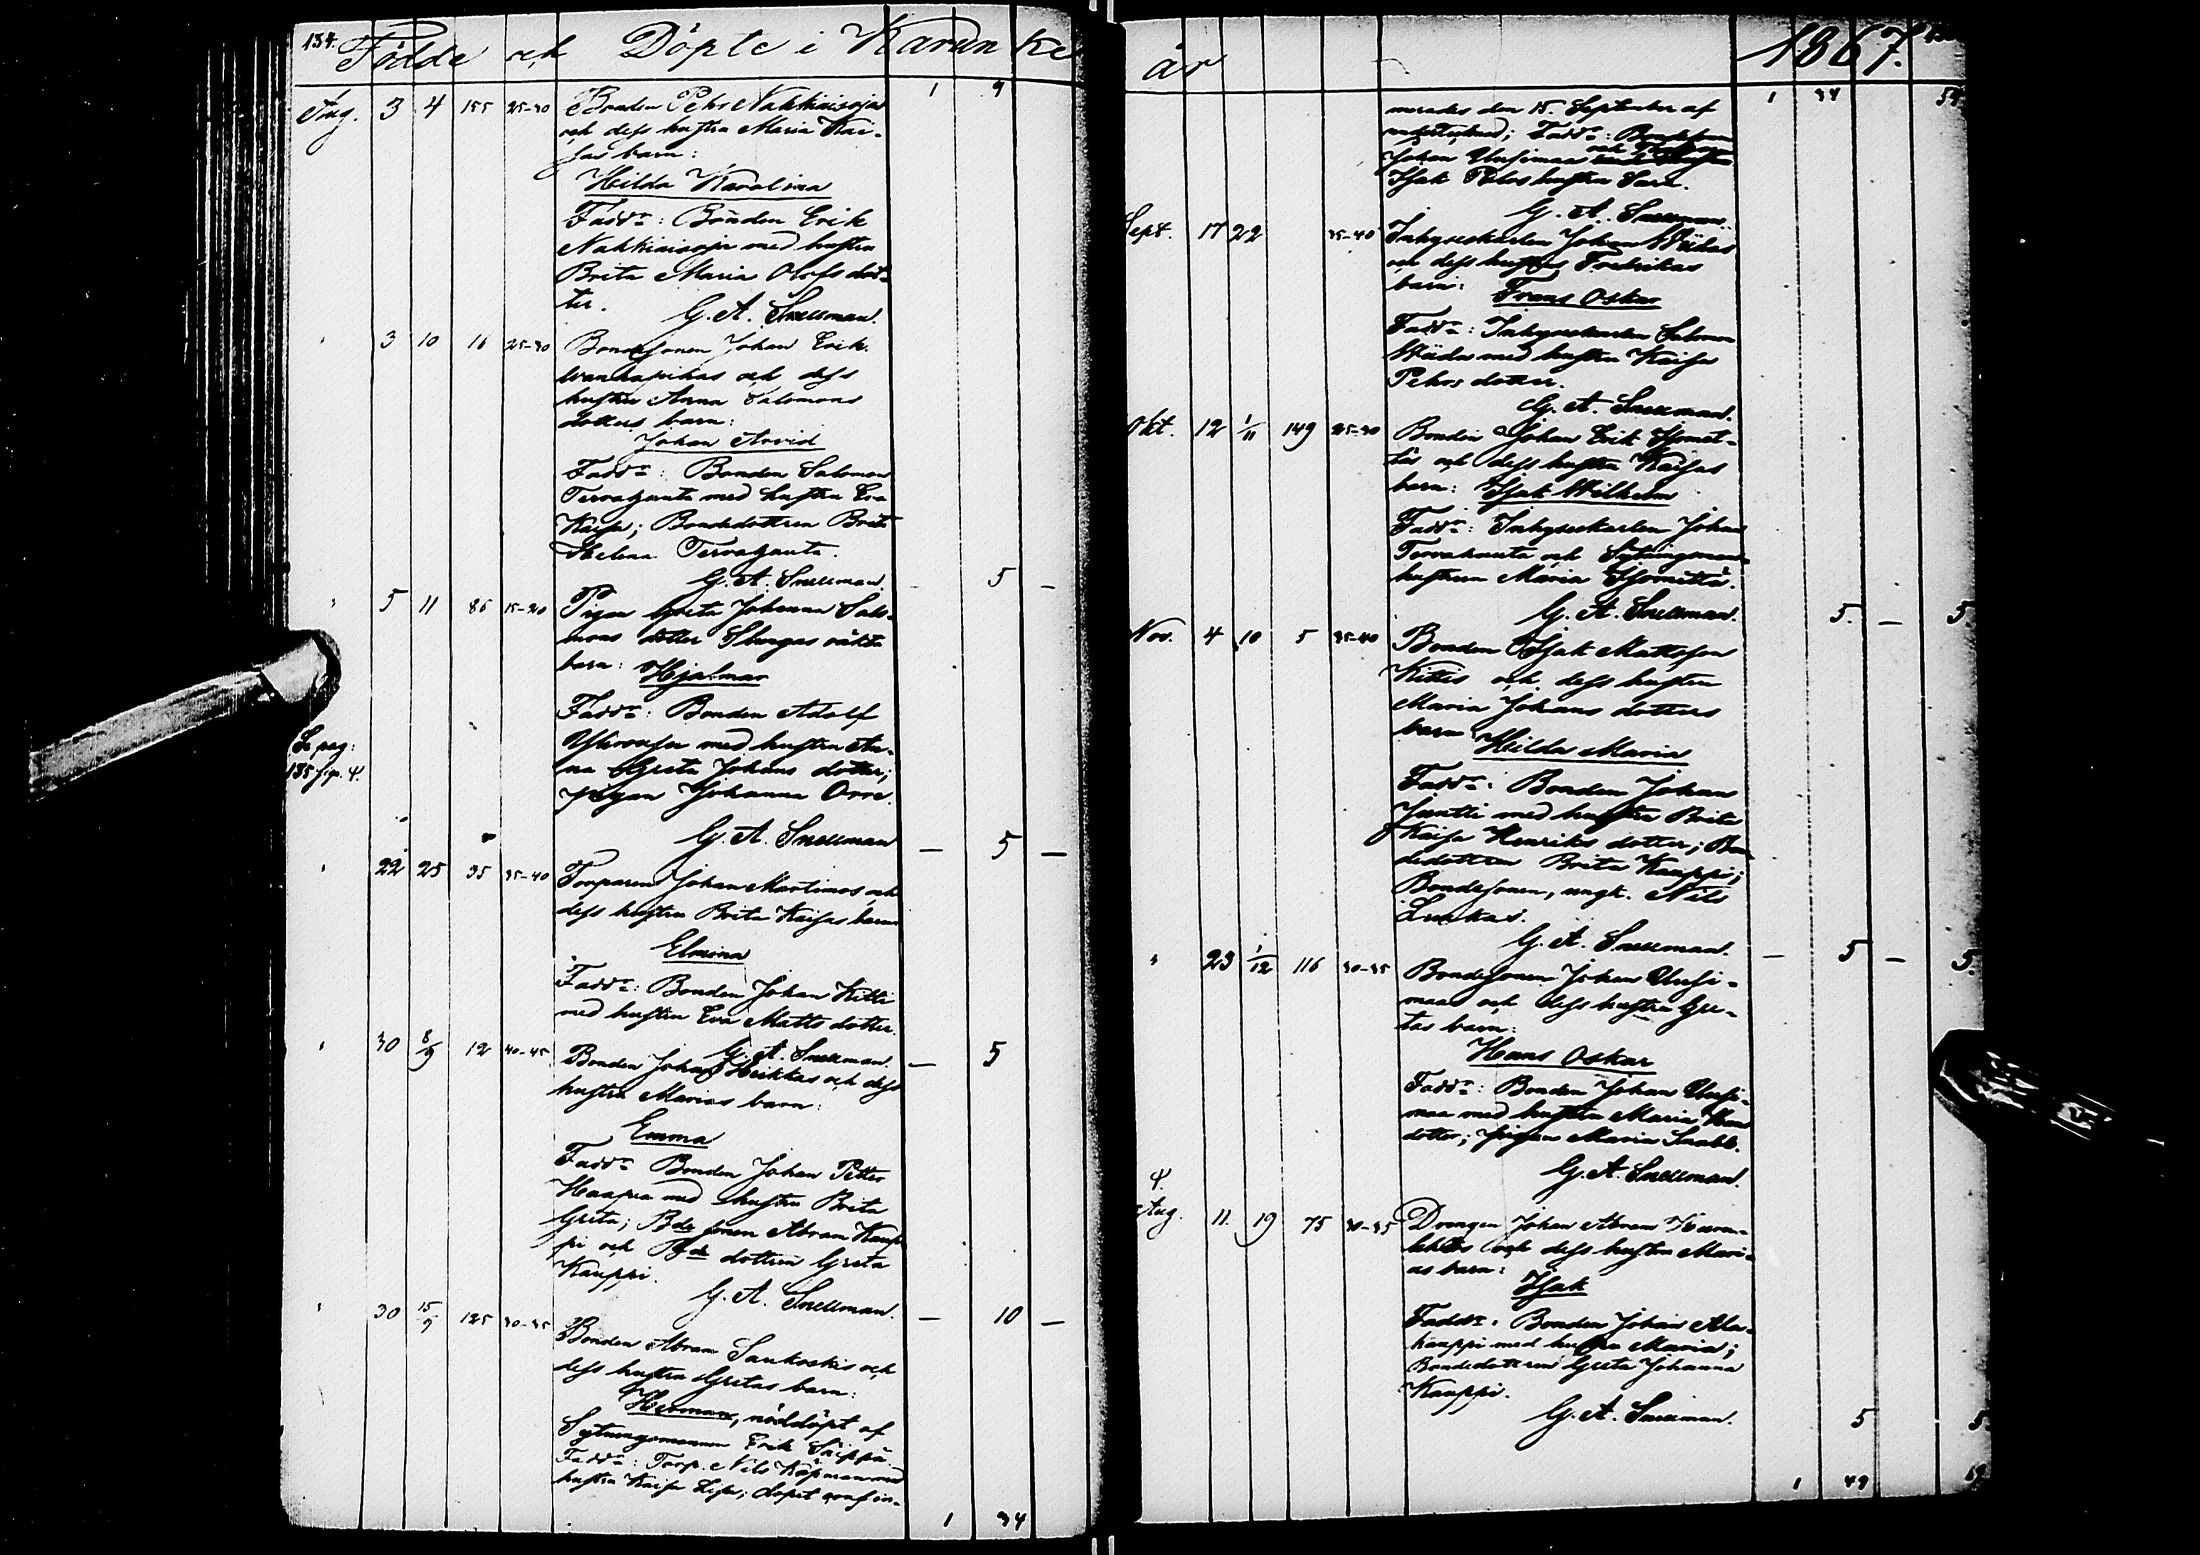 134.
Födde och Döpte i Karunki
Aug. 3 4 155 25-30 Bonden Pehr Nahkiaisojas 1 9
och dess hustru Maria Kai-
sas barn:
Hilda Karolina
Fadd:r: Bonden Erik
Nahkiaisoja med hustru
Brita Maria Olofs dot-
ter.
G. A. Snellman.
" 3 10 16 25-30 Bondesonen Johan Erik
och dess
hustru Anna Salomons
dotters barn:
Johan Arvid
Fadd:r: Bonden Salomon
Tervahauta med hustru Eva
Kaisa; Bondedottren Brita
Helena Tervahauta.
G. A. Snellman. — 5 —
" 5 11 86 15-20 Pigan Greta Johanna Salo-
mons dotter oäkta
barn: Hjalmar
Fadd:r: Bonden Adolf
med hustru An-
na Greta Johans dotter;
pigan Johanna Orre.
Se pag:
135 fig. 4.
G. A. Snellman — 5 —
" 22 25 35 35-40 Torparen Johan Martimos och
dess hustru Brita Kaisas barn
Elmina
Fadd:r: Bonden Johan Kitti
med hustru Eva Matts dotter.
G. A. Snellman. — 5
" 30 8/9 12 40-45 Bonden Johan Heikkas och dess
hustru Marias barn:
Emma
Fadd:r Bonden Johan Petter
Haapa med hustru Brita
Greta; Bde sonen Abram Kaup-
pi och Bde dottren Greta
Kauppi.
G. A. Snellman. — 10 —
" 30 15/9 125 30-35 Bonden Abram Sankoskis och
dess hustru Gretas barn:
Herman, nöddöpt af
Sytningsmannen Erik Säippä.
Fadd:r: Torp. Nils Käpman med
hustru Kaisa Lisa; dopet confir-
1 34
år 1867.
merades den 15. September af 1 34 54
Fadd:r:
Johan Uusimaa
Isak Pehrs hustru Sara.
G. A. Snellman.
Sept. 17 22 35-40 Inhyseskarlen Johan Wiidas
och dess hustrus Fredrikas
barn: Frans Oskar
Fadd:r: Inhyseskarlen Salomon
Wiida med hustru Kaisa
Pehrs dotter.
G. A. Snellman.
Okt. 12 1/11 149 25-30 Bonden Johan Erik Isomet-
täs och dess hustru Kaisas
barn: Isak Wilhelm
Fadd:r: Inhyseskarlen Johan
Tervahauta och Sytningsmans
hustrun Maria Isomettä.
G. A. Snellman. 5. — 5.
Nov. 4 10 5 35-40 Bonden Isak Mattsson
Kittis och dess hustru
Maria Johans dotters
barn Hilda Maria
Fadd:r: Bonden Johan
Juntti med hustru Brita
Kaisa Henriks dotter; Bon-
dedottren Brita Kauppi;
Bondesonen, ungk. Nils
Luukas.
G. A. Snellman. — 5 — 5.
" 23 1/12 116 30-35 Bondesonen Johan Uusi-
maas och dess hustru Gre-
tas barn:
Hans Oskar
Fadd:r: Bonden Johan Uusi-
maa med hustru Maria
dotter; pigan Maria
G. A. Snellman.
4.
Aug. 11. 19 75 30-35 Drengen Johan Abram
och dess hustru Mari-
as barn:
Isak
Fadd:r: Bonden Johan Ala-
kauppi med hustru Maria;
Bondedottren Greta Johanna
Kauppi.
G. A. Snellman. 5 5
1 49